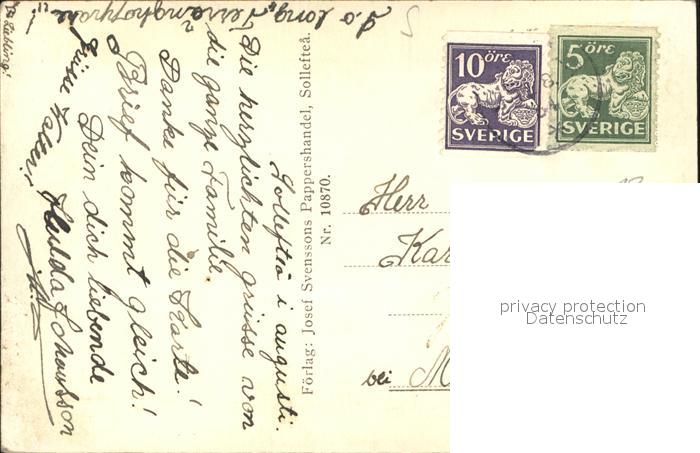 10 ÖRE
SVERIGE
5 ÖRE
SVERIGE
Sollefteå i augusti.
Die herzlichsten grüsse von
die ganze Familie.
Danke für die Karte!
Brief kommt gleich!
Dein dich liebende
Hulda Johansson
Förlag: Josef Svenssons Pappershandel, Sollefteå.
Nr. 10870.
Herr
Kar
bei M
privacy protection
Datenschutz